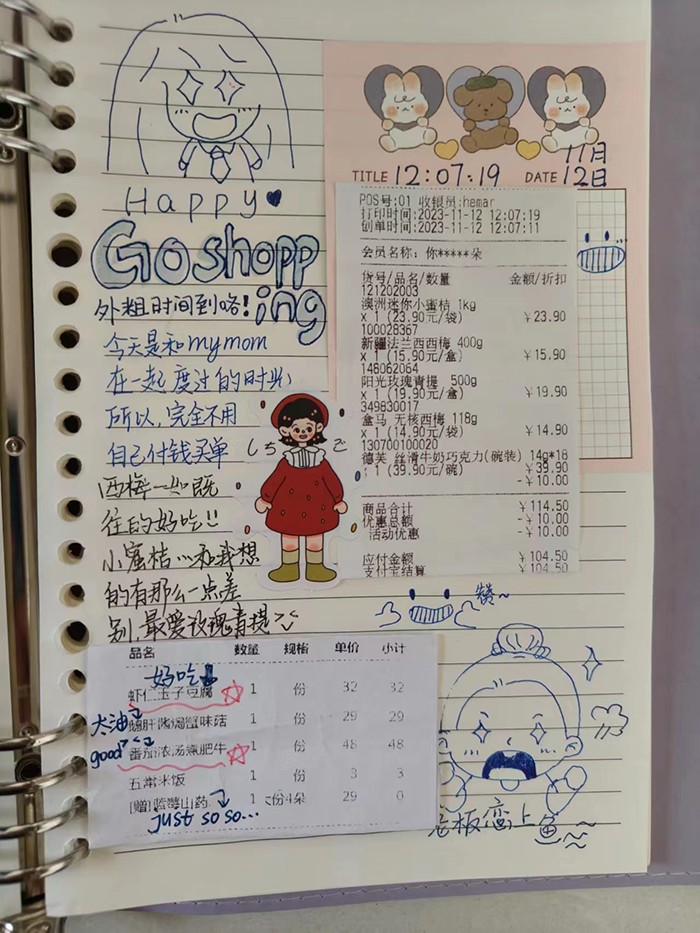 Happy
Go shopp
ing
外粗时间到咯!
今天是和my mom
在一起度过的时光
所以,完全不用
自己付钱买单
西梅一如既
往的好吃!!
小蜜桔…和我想
的有那么一点差
别,最爱玫瑰青提
11月
TITLE 12:07:19 DATE 12日
POS号:01 收银员:hemar
打印时间:2023-11-12 12:07:19
创单时间:2023-11-12 12:07:11
会员名称:你*****朵
货号/品名/数量 金额/折扣
121202003
澳洲迷你小蜜桔 1kg
x 1 (23.90元/袋) ¥23.90
100028367
新疆法兰西西梅 400g
x 1 (15.90元/盒) ¥15.90
148062064
阳光玫瑰青提 500g
x 1 (19.90元/盒) ¥19.90
349830017
盒马 无核西梅 118g
x 1 (14.90元/袋) ¥14.90
130700100020
德芙 丝滑牛奶巧克力(碗装) 14g*18
1 (39.90元/碗) ¥39.90
-¥10.00
商品合计 ¥114.50
优惠总额 -¥10.00
活动优惠 -¥10.00
应付金额 ¥104.50
支付宝结算 ¥104.50
いちご
赞~
品名 数量 规格 单价 小计
好吃
虾仁玉子豆腐 1 份 32 32
太油
鹅肝酱焗蟹味菇 1 份 29 29
good~
番茄浓汤煮肥牛 1 份 48 48
五常米饭 1 份 3 3
[赠]蓝莓山药 1 份4朵 29 0
just so so...
老板恋上鱼